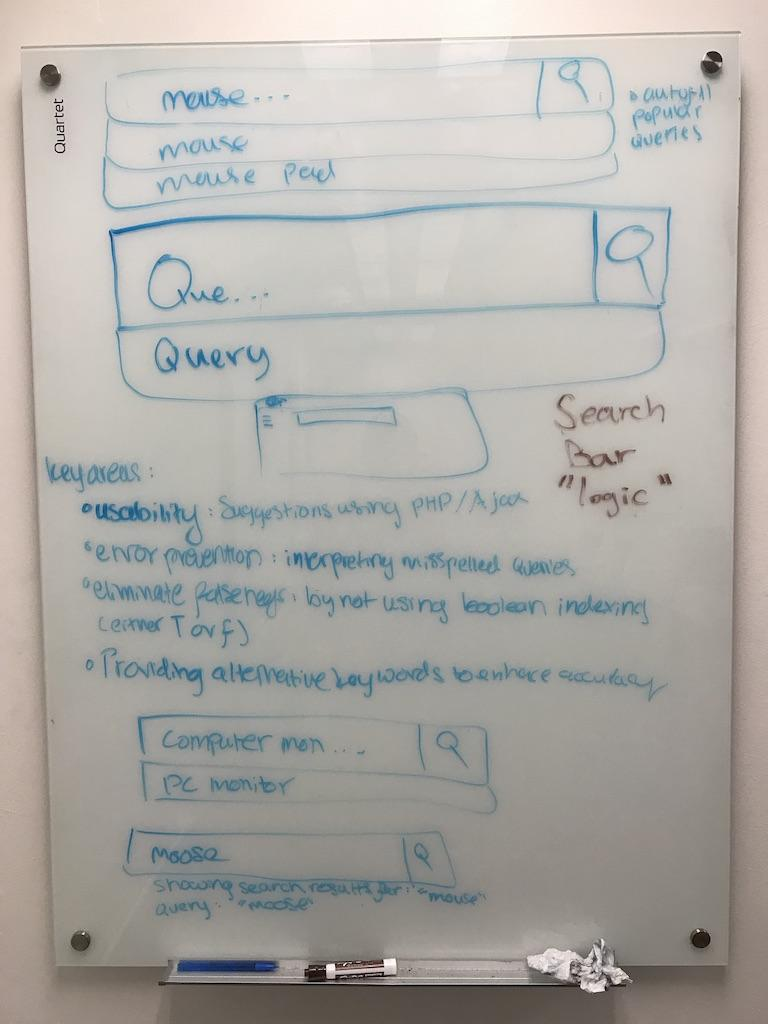 Quartet
mouse...
mouse
mouse pad
• autofill
popular
queries
Que...
Query
Search
Bar
"logic"
key areas:
• usability: Suggestions using PHP/Ajax
• error prevention: interpreting misspelled queries
• eliminate false negs: by not using boolean indexing
(either T or f)
• Providing alternative keywords to enhance accuracy
Computer mon...
PC monitor
moose
showing search results for: "mouse"
query: "moose"